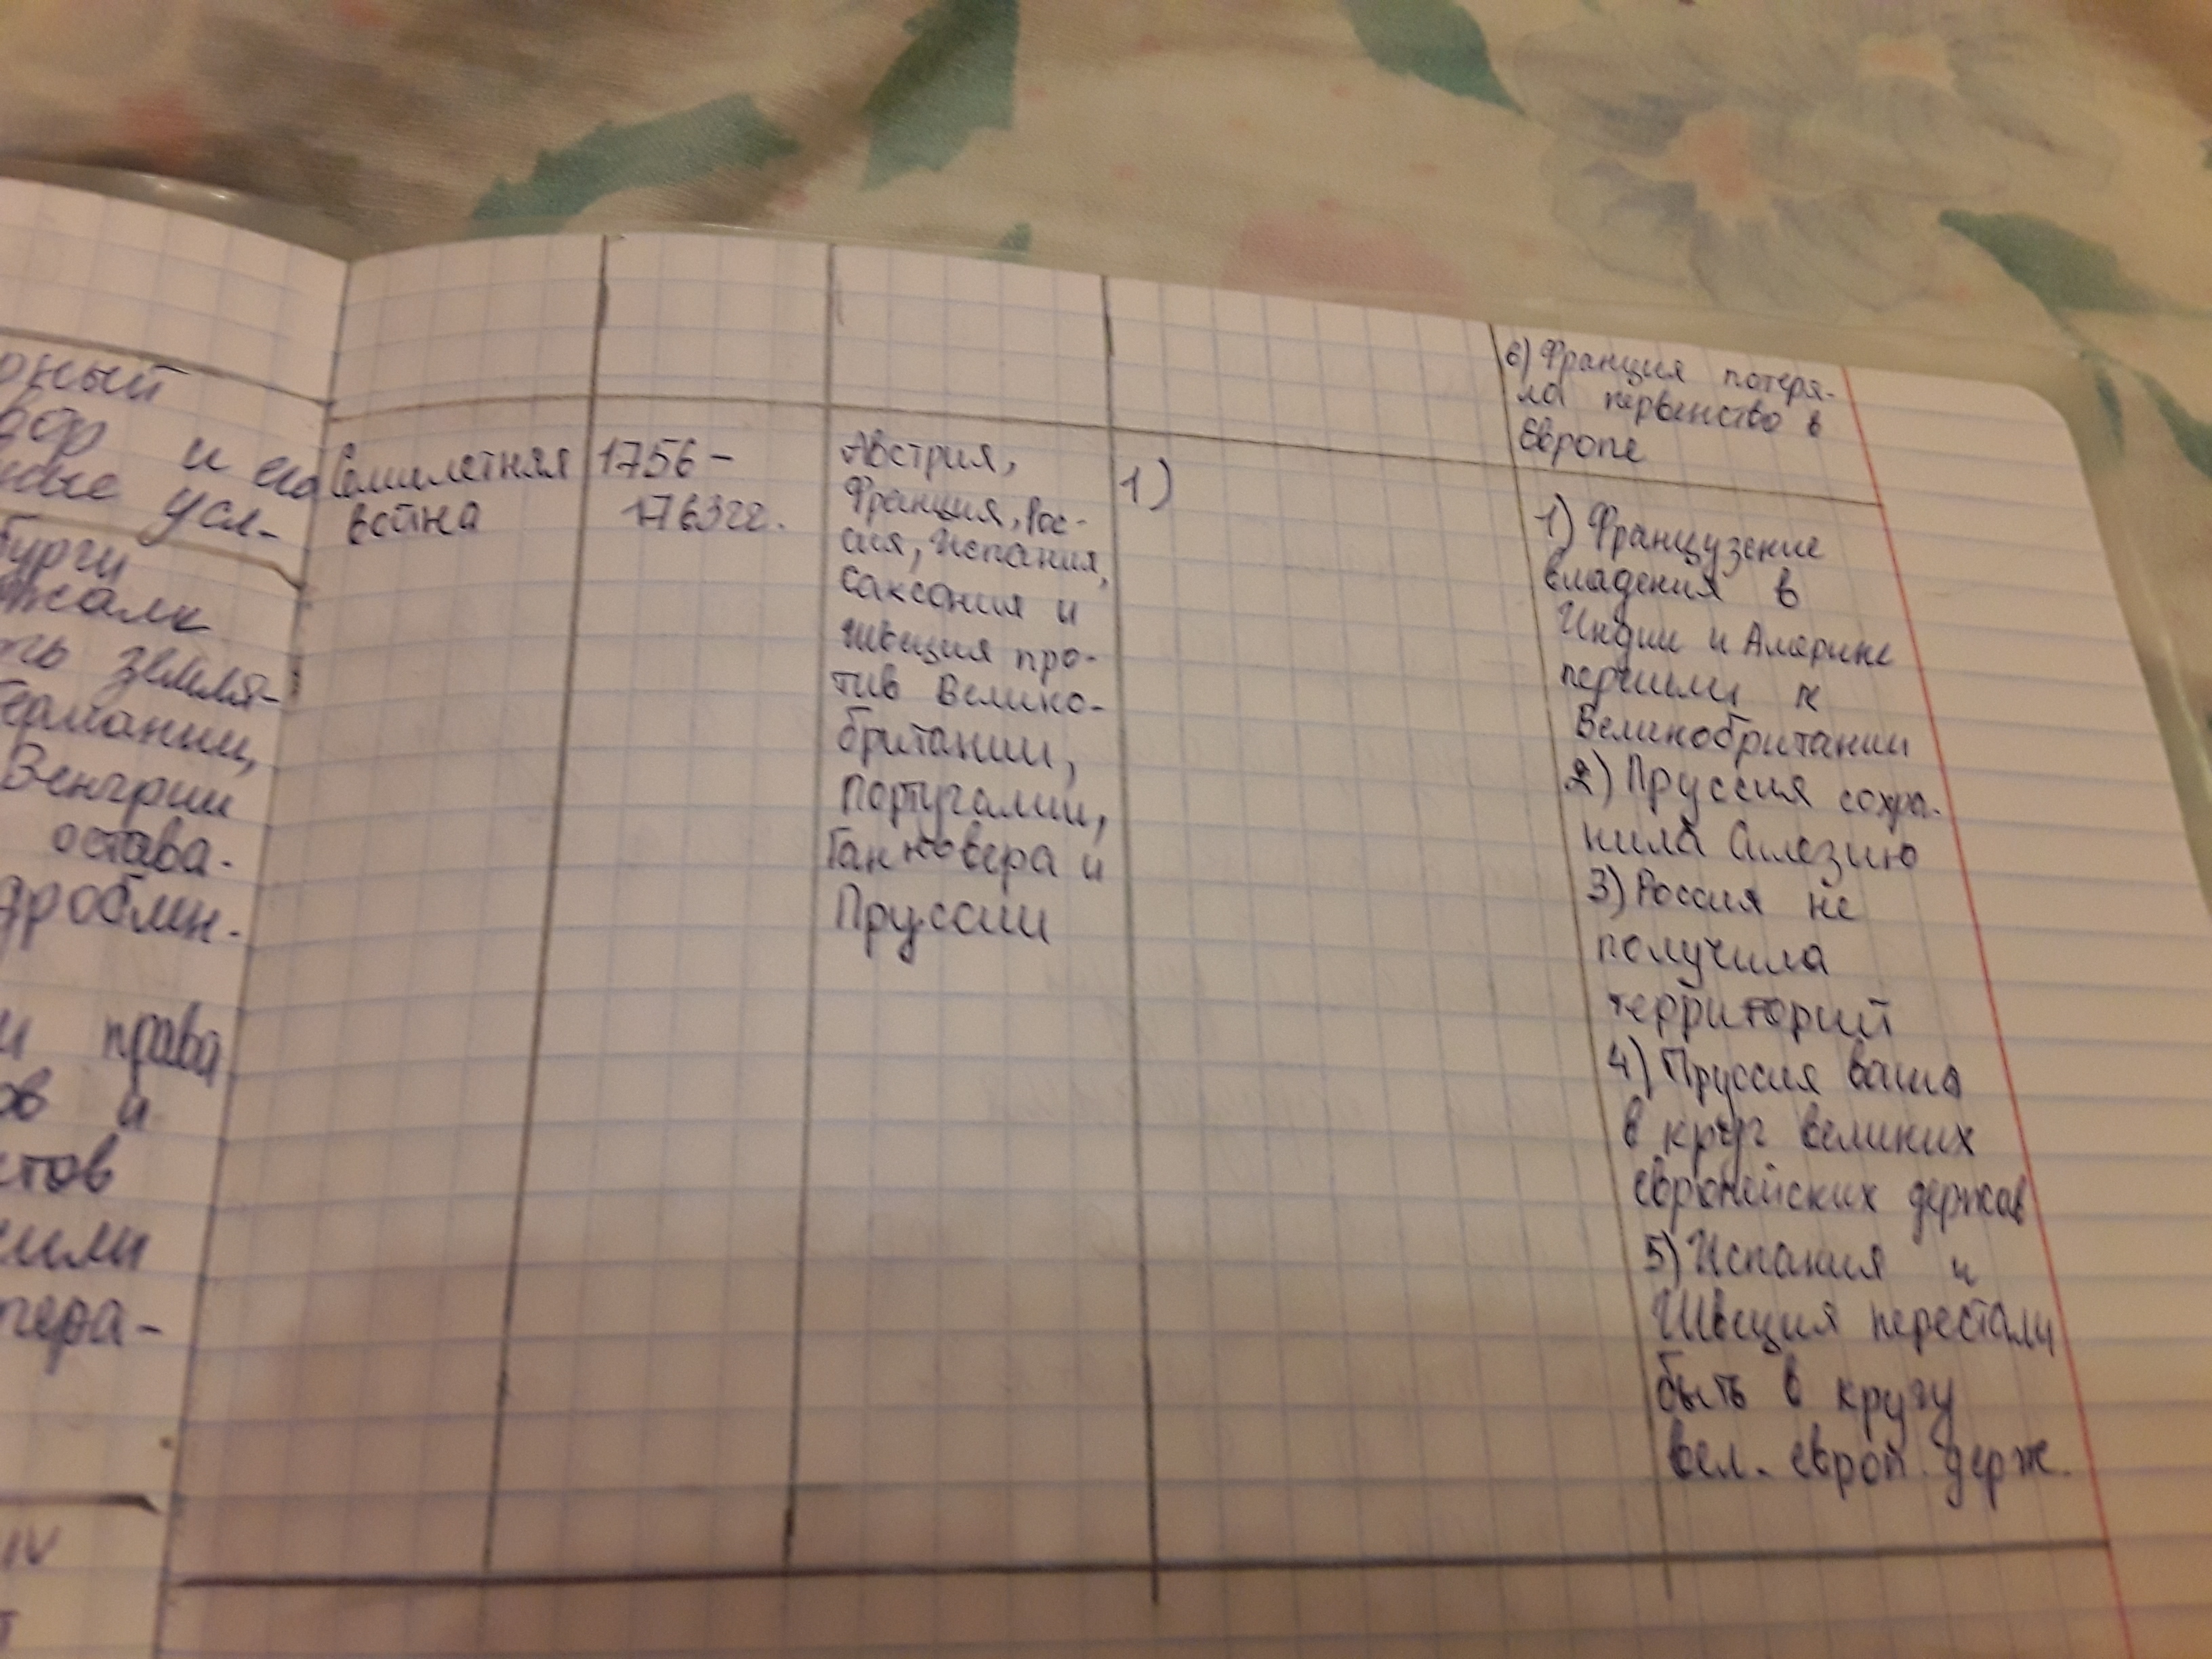 рный
вор и его
ные усл-
бурги
жали
ть земля-
Германии,
Венгрии
остава-
дроблен-
и права
ов и
стов
сили
пера-
IV
Семилетняя
война
1756-
1763гг.
Австрия,
Франция, Рос-
сия, Испания,
Саксония и
Швеция про-
тив Велико-
британии,
Португалии,
Ганновера и
Пруссии
1)
6) Франция потеря-
ла первенство в
Европе
1) Французские
владения в
Индии и Америке
перешли к
Великобритании
2) Пруссия сохра-
нила Силезию
3) Россия не
получила
территорий
4) Пруссия вошла
в круг великих
европейских держав
5) Испания и
Швеция перестали
быть в кругу
вел. европ. держ.